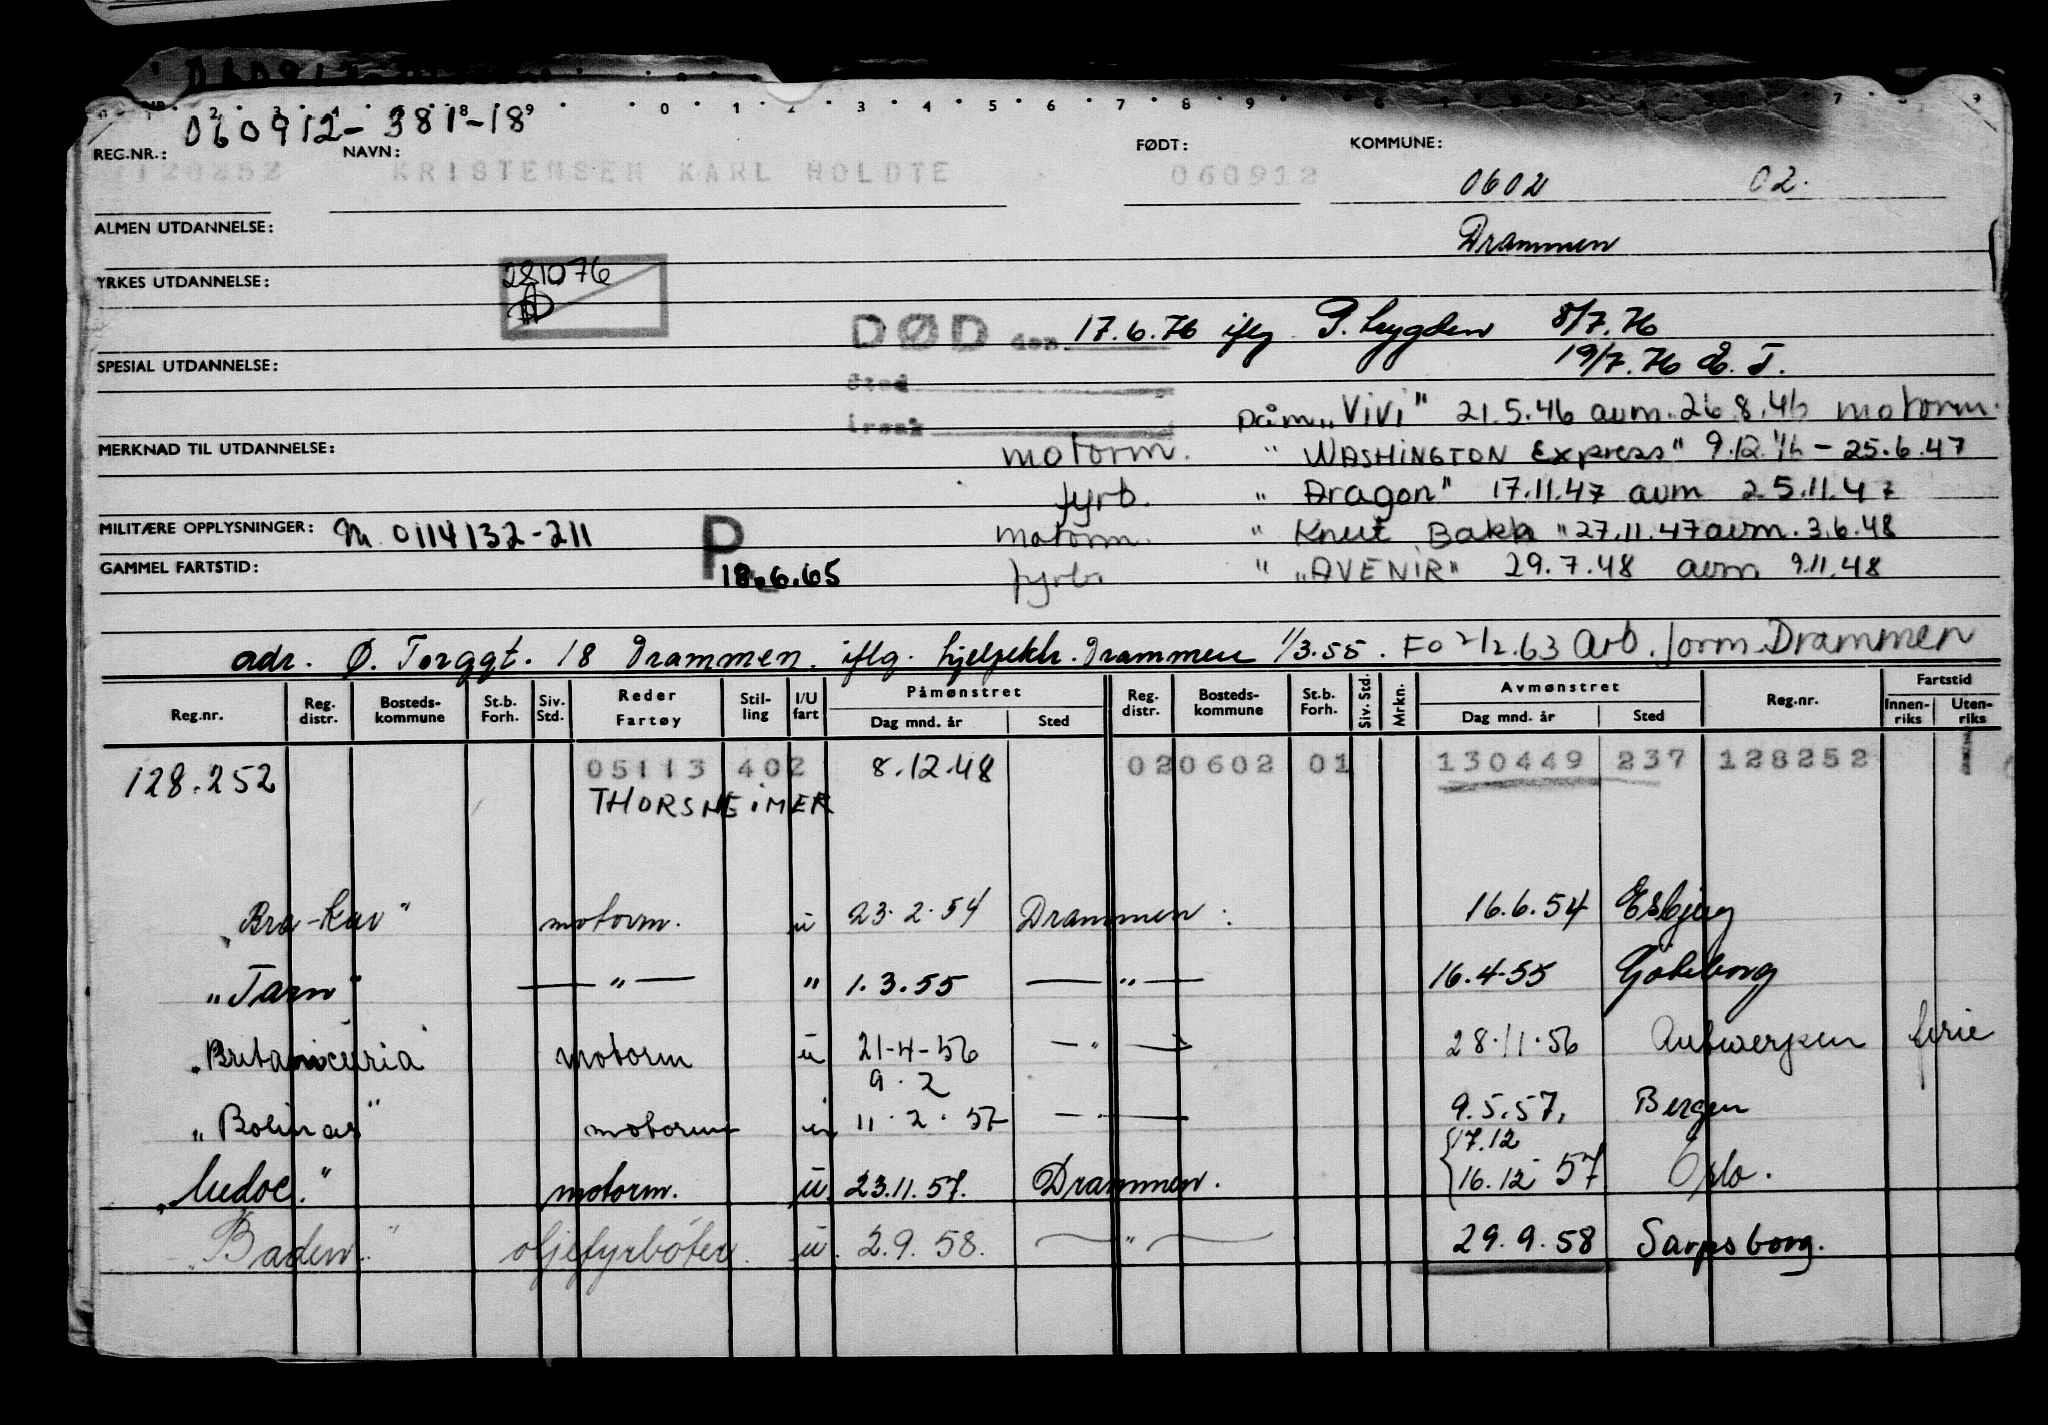 060912-381-18
REG.NR.: NAVN: FØDT: KOMMUNE:
128252 KRISTENSEN KARL HOLDTE 060912 0602 02.
ALMEN UTDANNELSE: Drammen
YRKES UTDANNELSE: 281076
DØD den 17.6.76 iflg P. Lygden 8/7.76
SPESIAL UTDANNELSE: 19/7.76
Sted
årsak påm. „ViVi" 21.5.46 avm. 26.8.46 motorm.
MERKNAD TIL UTDANNELSE: motorm. " WASHINGTON Express" 9.12.46 - 25.6.47
fyrb. " Aragon" 17.11.47 avm 25.11.47
MILITÆRE OPPLYSNINGER: M. 0114132-211 P motorm. " Knut Bakk " 27.11.47 avm. 3.6.48
GAMMEL FARTSTID: 18.6.65 fyrb. " „AVENIR" 29.7.48 avm 9.11.48
adr. Ø. Torggt. 18 Drammen. iflg. hjelpektr. Drammen 1/3.55. Fo 2/2.63 Arb. form. Drammen
Reg.nr. Reg. distr. Bosteds-kommune St.b. Forh. Siv. Std. Reder Fartøy Stil-ling I/U fart Påmønstret Dag mnd. år Sted Reg. distr. Bosteds-kommune St.b. Forh. Siv. Std. Mrkn. Avmønstret Dag mnd. år Sted Reg.nr. Fartstid Innen-riks Uten-riks
128.252 05113 402 8.12.48 020602 01 130449 237 128252
THORSHEIMER
„Bra-Kar" motorm. u 23.2.54 Drammen. 16.6.54 Esbjerg
„Tarn" — " — " 1.3.55 — " — 16.4.55 Göteborg
„Britanicuria motorm u 21-4-56 — " — 28.11.56 Antwerpen ferie
9.2
„Bolinas" motorm u 11.2.57 — " — 9.5.57, Bergen
17.12
„Medoc." motorm. u. 23.11.57. Drammen. 16.12 57 Oslo.
„Baden" oljefyrbøter. u. 2.9.58. — " — 29.9.58 Sarpsborg.